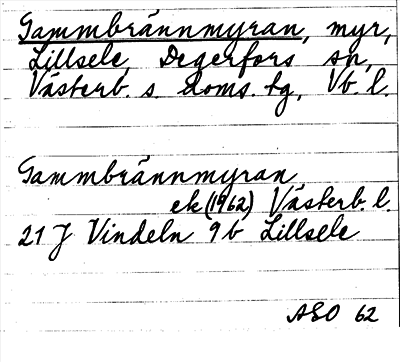 Gammbrännmyran, myr,
Lillsele, Degerfors sn,
Västerb. s. doms. tg, Vb. l.
Gammbrännmyran
ek (1962) Västerb. l.
21 J Vindeln 9 b Lillsele
ASO 62